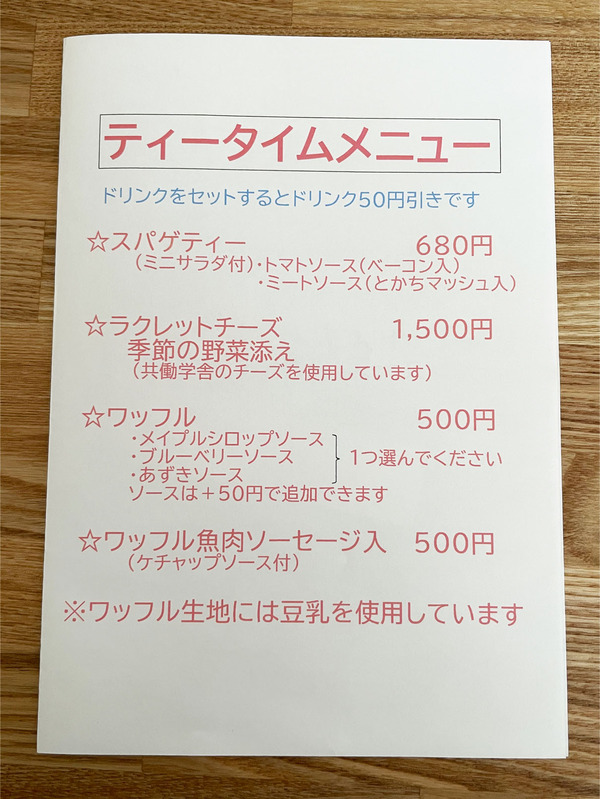 ティータイムメニュー
ドリンクをセットするとドリンク50円引きです
☆スパゲティー 680円
(ミニサラダ付)・トマトソース(ベーコン入)
・ミートソース(とかちマッシュ入)
☆ラクレットチーズ 1,500円
季節の野菜添え
(共働学舎のチーズを使用しています)
☆ワッフル 500円
・メイプルシロップソース
・ブルーベリーソース 1つ選んでください
・あずきソース
ソースは+50円で追加できます
☆ワッフル魚肉ソーセージ入 500円
(ケチャップソース付)
※ワッフル生地には豆乳を使用しています